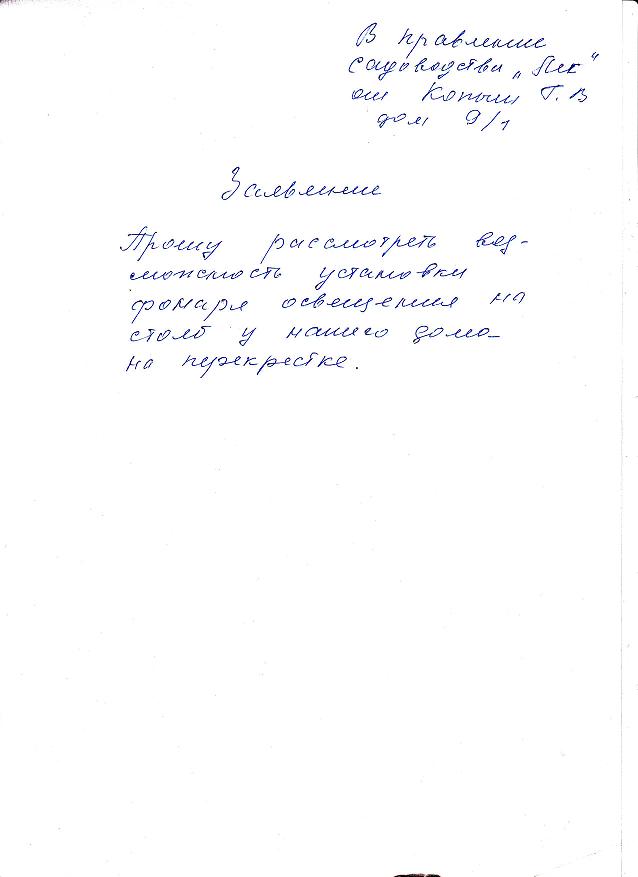 В правление
садоводства „Пек"
от Копыт Г. В
дом 9/1
Заявление
Прошу рассмотреть воз-
можность установки
фонаря освещения на
столб у нашего дома
на перекрестке.